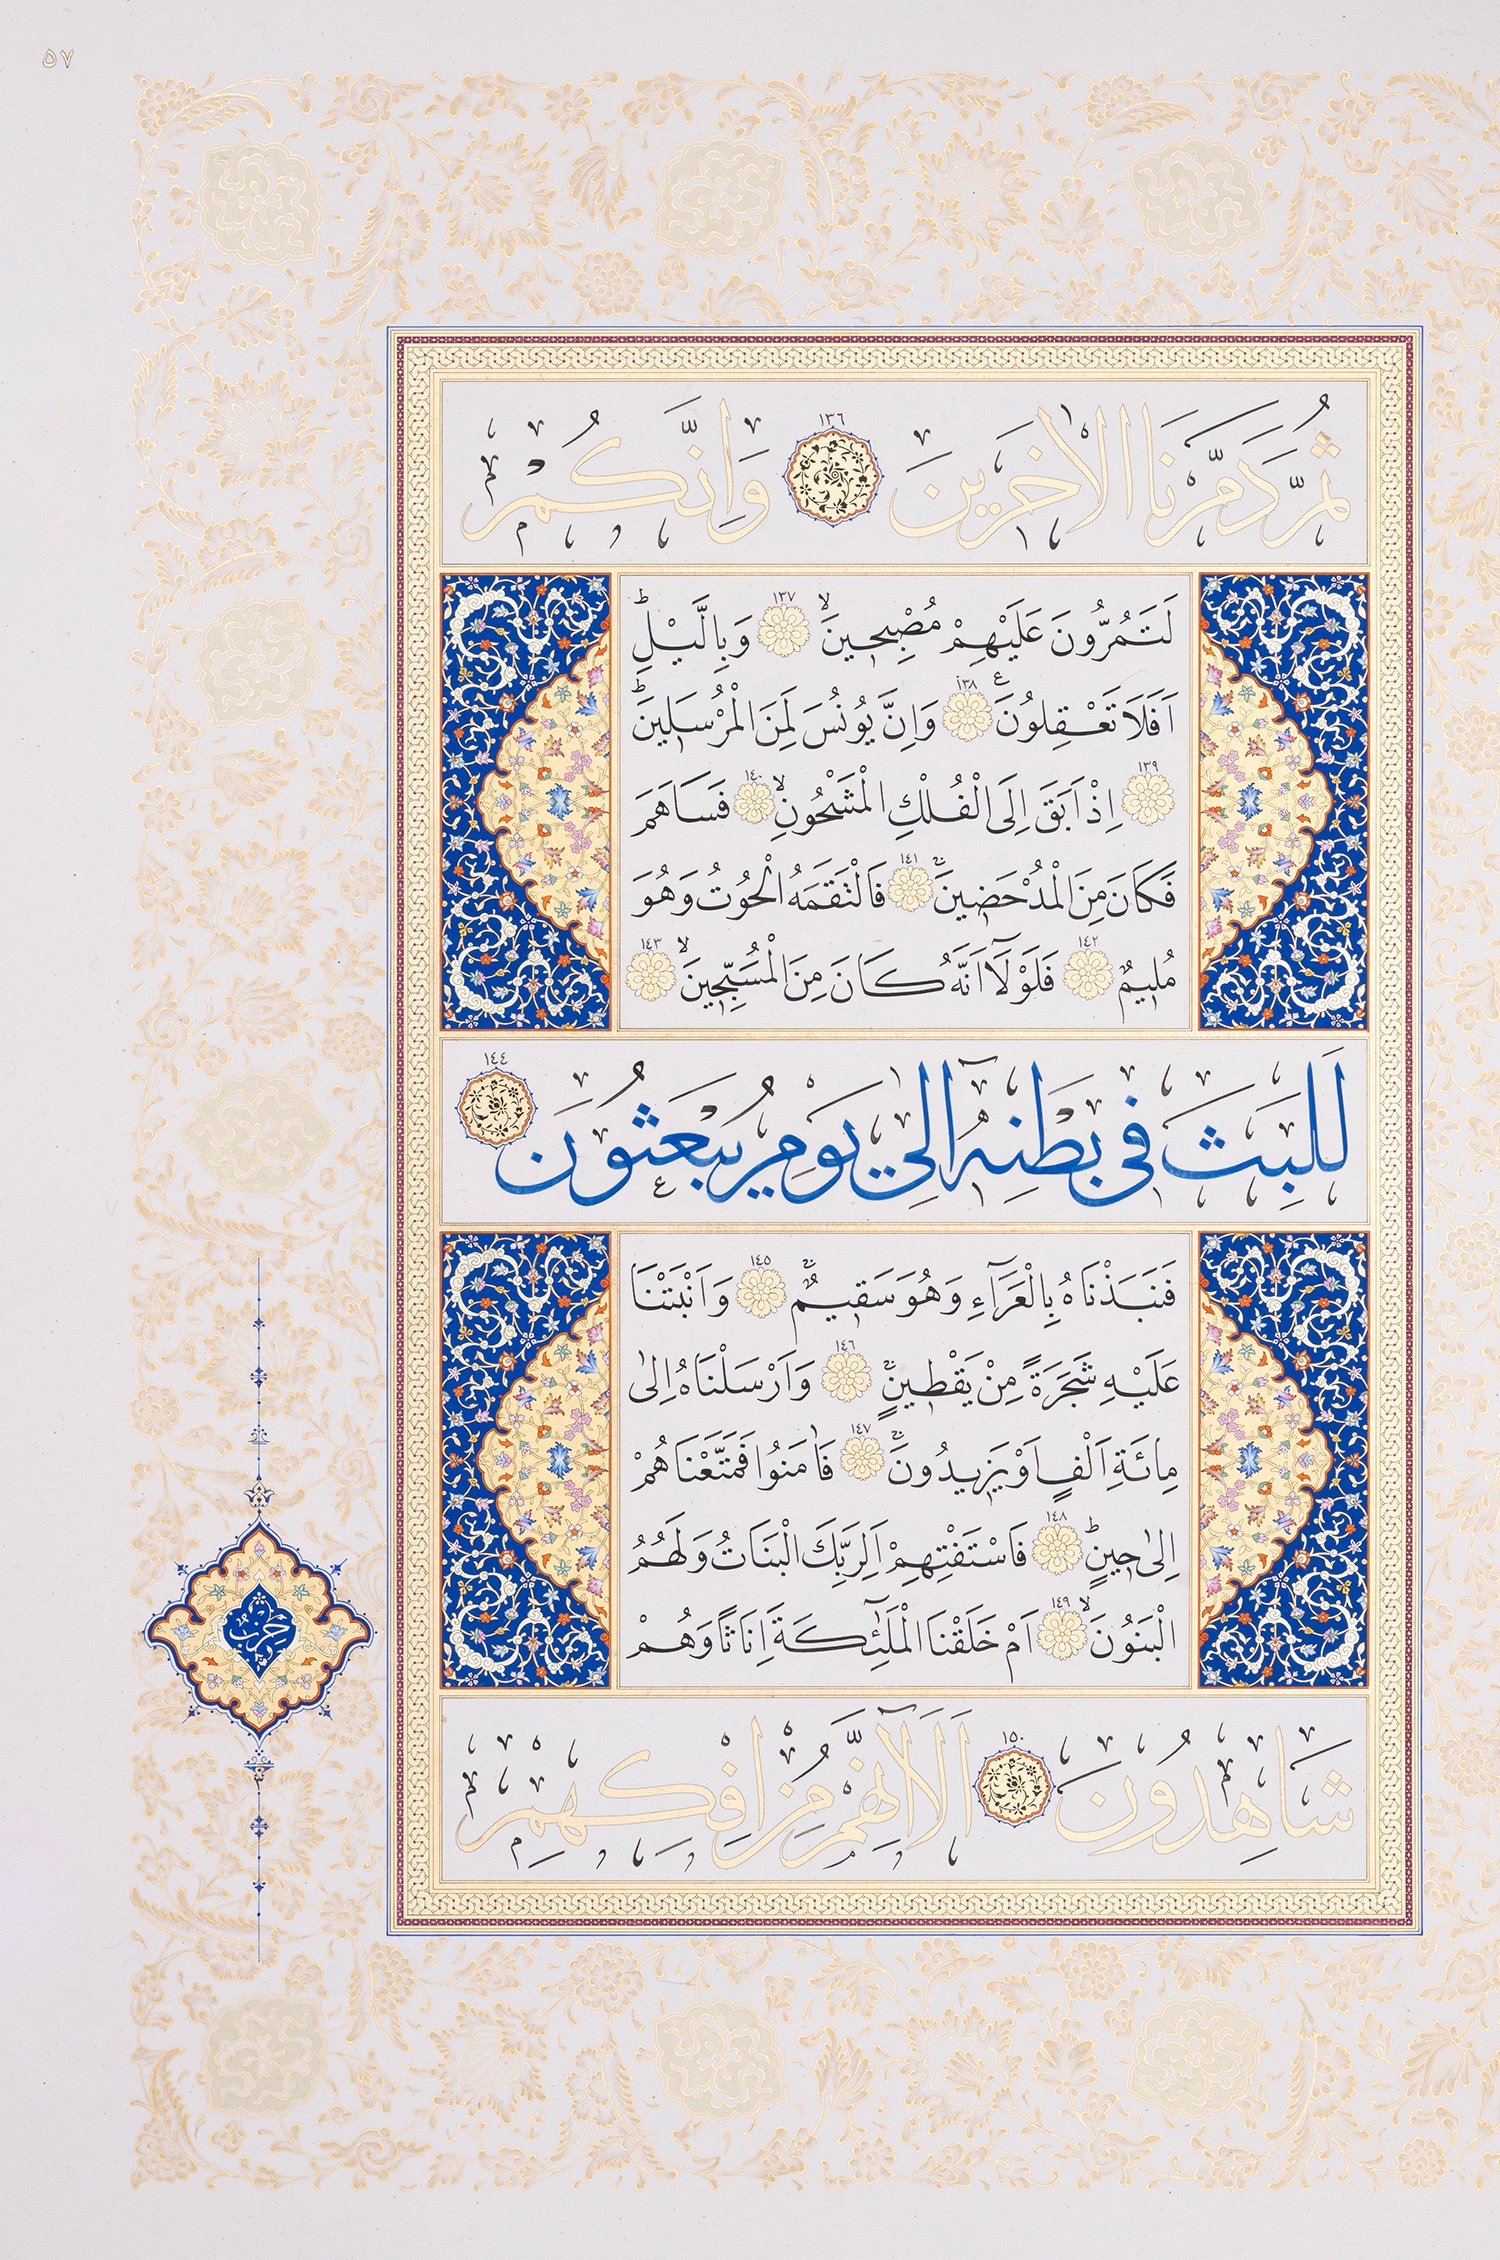 ٥٧
ثُمَّ دَمَّرْنَا الْاٰخَرٖينَ ١٣٦ وَاِنَّكُمْ
لَتَمُرُّونَ عَلَيْهِمْ مُصْبِحٖينَۙ ١٣٧ وَبِالَّيْلِؕ
اَفَلَا تَعْقِلُونَࣖ ١٣٨ وَاِنَّ يُونُسَ لَمِنَ الْمُرْسَلٖينَؕ
١٣٩ اِذْ اَبَقَ اِلَى الْفُلْكِ الْمَشْحُونِۙ ١٤٠ فَسَاهَمَ
فَكَانَ مِنَ الْمُدْحَضٖينَۚ ١٤١ فَالْتَقَمَهُ الْحُوتُ وَهُوَ
مُلٖيمٌ ١٤٢ فَلَوْلَٓا اَنَّهُ كَانَ مِنَ الْمُسَبِّحٖينَۙ ١٤٣
لَلَبِثَ فٖى بَطْنِهٖٓ اِلٰى يَوْمِ يُبْعَثُونَ ١٤٤
فَنَبَذْنَاهُ بِالْعَرَٓاءِ وَهُوَ سَقٖيمٌۚ ١٤٥ وَاَنْبَتْنَا
عَلَيْهِ شَجَرَةً مِنْ يَقْطٖينٍۚ ١٤٦ وَاَرْسَلْنَاهُ اِلٰى
مِائَةِ اَلْفٍ اَوْ يَزٖيدُونَۚ ١٤٧ فَاٰمَنُوا فَمَتَّعْنَاهُمْ
اِلٰى حٖينٍؕ ١٤٨ فَاسْتَفْتِهِمْ اَلِرَبِّكَ الْبَنَاتُ وَلَهُمُ
الْبَنُونَۙ ١٤٩ اَمْ خَلَقْنَا الْمَلٰٓئِكَةَ اِنَاثًا وَهُمْ
شَاهِدُونَ ١٥٠ اَلَٓا اِنَّهُمْ مِنْ اِفْكِهِمْ
حزب
٢